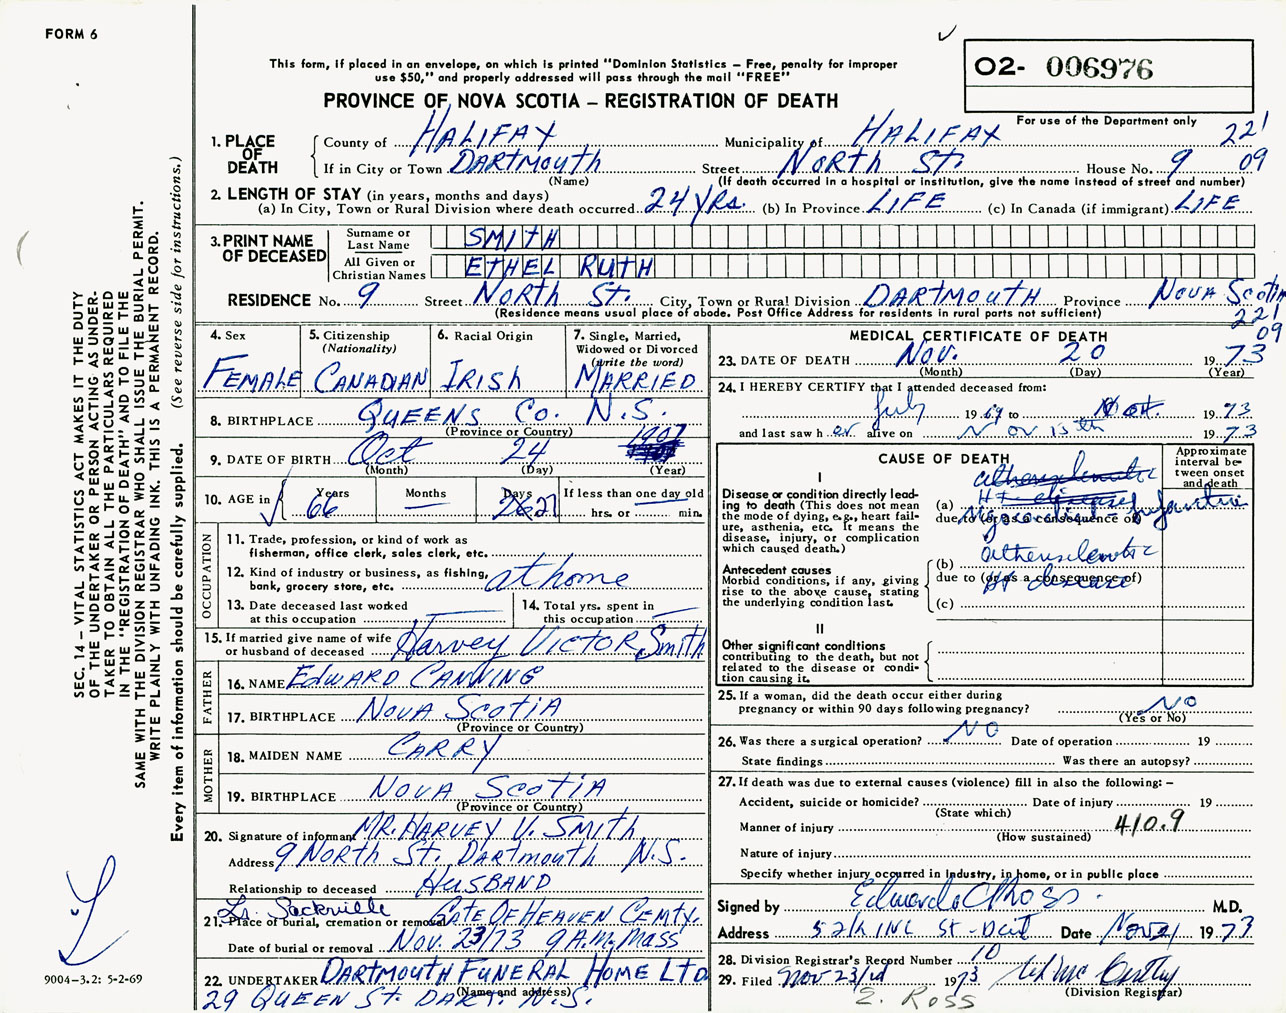 FORM 6
This form, if placed in an envelope, on which is printed "Dominion Statistics – Free, penalty for improper
use $50," and properly addressed will pass through the mail "FREE"
PROVINCE OF NOVA SCOTIA – REGISTRATION OF DEATH
O2- 006976
For use of the Department only
221
09
1. PLACE OF DEATH
County of HALIFAX Municipality of HALIFAX
If in City or Town DARTMOUTH Street NORTH ST. House No. 9
(Name) (If death occurred in a hospital or institution, give the name instead of street and number)
2. LENGTH OF STAY (in years, months and days)
(a) In City, Town or Rural Division where death occurred 24 yrs. (b) In Province LIFE (c) In Canada (if immigrant) LIFE
3. PRINT NAME OF DECEASED
Surname or Last Name SMITH
All Given or Christian Names ETHEL RUTH
RESIDENCE No. 9 Street NORTH ST. City, Town or Rural Division DARTMOUTH Province NOVA SCOTIA
(Residence means usual place of abode. Post Office Address for residents in rural parts not sufficient)
221
09
4. Sex FEMALE
5. Citizenship (Nationality) CANADIAN
6. Racial Origin IRISH
7. Single, Married, Widowed or Divorced (write the word) MARRIED
8. BIRTHPLACE QUEENS CO. N.S.
(Province or Country)
9. DATE OF BIRTH Oct 24 1907
(Month) (Day) (Year)
10. AGE in Years 66 Months Days 27 If less than one day old hrs. or min.
OCCUPATION
11. Trade, profession, or kind of work as fisherman, office clerk, sales clerk, etc.
12. Kind of industry or business, as fishing, bank, grocery store, etc. at home
13. Date deceased last worked at this occupation
14. Total yrs. spent in this occupation
15. If married give name of wife or husband of deceased Harvey VICTOR Smith
FATHER
16. NAME EDWARD CANNING
17. BIRTHPLACE NOVA SCOTIA
(Province or Country)
MOTHER
18. MAIDEN NAME CARRY
19. BIRTHPLACE NOVA SCOTIA
(Province or Country)
20. Signature of informant MR. HARVEY V. SMITH
Address 9 NORTH ST. DARTMOUTH N.S.
Relationship to deceased HUSBAND
Lr. Sackville
21. Place of burial, cremation or removal GATE OF HEAVEN CEMTY.
Date of burial or removal Nov. 23/73 9 A.M. MASS
22. UNDERTAKER DARTMOUTH FUNERAL HOME LTD
(Name and address)
29 QUEEN ST. DART. N.S.
MEDICAL CERTIFICATE OF DEATH
23. DATE OF DEATH Nov. 20 1973
(Month) (Day) (Year)
24. I HEREBY CERTIFY that I attended deceased from:
July 1969 to Nov. 1973
and last saw her alive on Nov 15th 1973
CAUSE OF DEATH
Approximate interval between onset and death
I
Disease or condition directly leading to death (This does not mean the mode of dying, e.g., heart failure, asthenia, etc. It means the disease, injury, or complication which caused death.)
(a) Myocardial Infarction
due to (or as a consequence of)
Antecedent causes
Morbid conditions, if any, giving rise to the above cause, stating the underlying condition last.
(b)
due to (or as a consequence of)
Ht disease
(c)
II
Other significant conditions
contributing to the death, but not related to the disease or condition causing it.
25. If a woman, did the death occur either during pregnancy or within 90 days following pregnancy? NO
(Yes or No)
26. Was there a surgical operation? NO Date of operation 19
State findings Was there an autopsy?
27. If death was due to external causes (violence) fill in also the following: –
Accident, suicide or homicide? Date of injury 19
(State which)
Manner of injury 410.9
(How sustained)
Nature of injury
Specify whether injury occurred in Industry, in home, or in public place
Signed by Edward Ross M.D.
Address St - Dart Date Nov 21 1973
28. Division Registrar's Record Number 10
29. Filed Nov 23/rd 1973
(Division Registrar)
E. ROSS
SEC. 14 – VITAL STATISTICS ACT MAKES IT THE DUTY
OF THE UNDERTAKER OR PERSON ACTING AS UNDER-
TAKER TO OBTAIN ALL THE PARTICULARS REQUIRED
IN THE "REGISTRATION OF DEATH" AND TO FILE THE
SAME WITH THE DIVISION REGISTRAR WHO SHALL ISSUE THE BURIAL PERMIT.
WRITE PLAINLY WITH UNFADING INK. THIS IS A PERMANENT RECORD.
Every item of information should be carefully supplied. (See reverse side for instructions.)
9004-3.2: 5-2-69